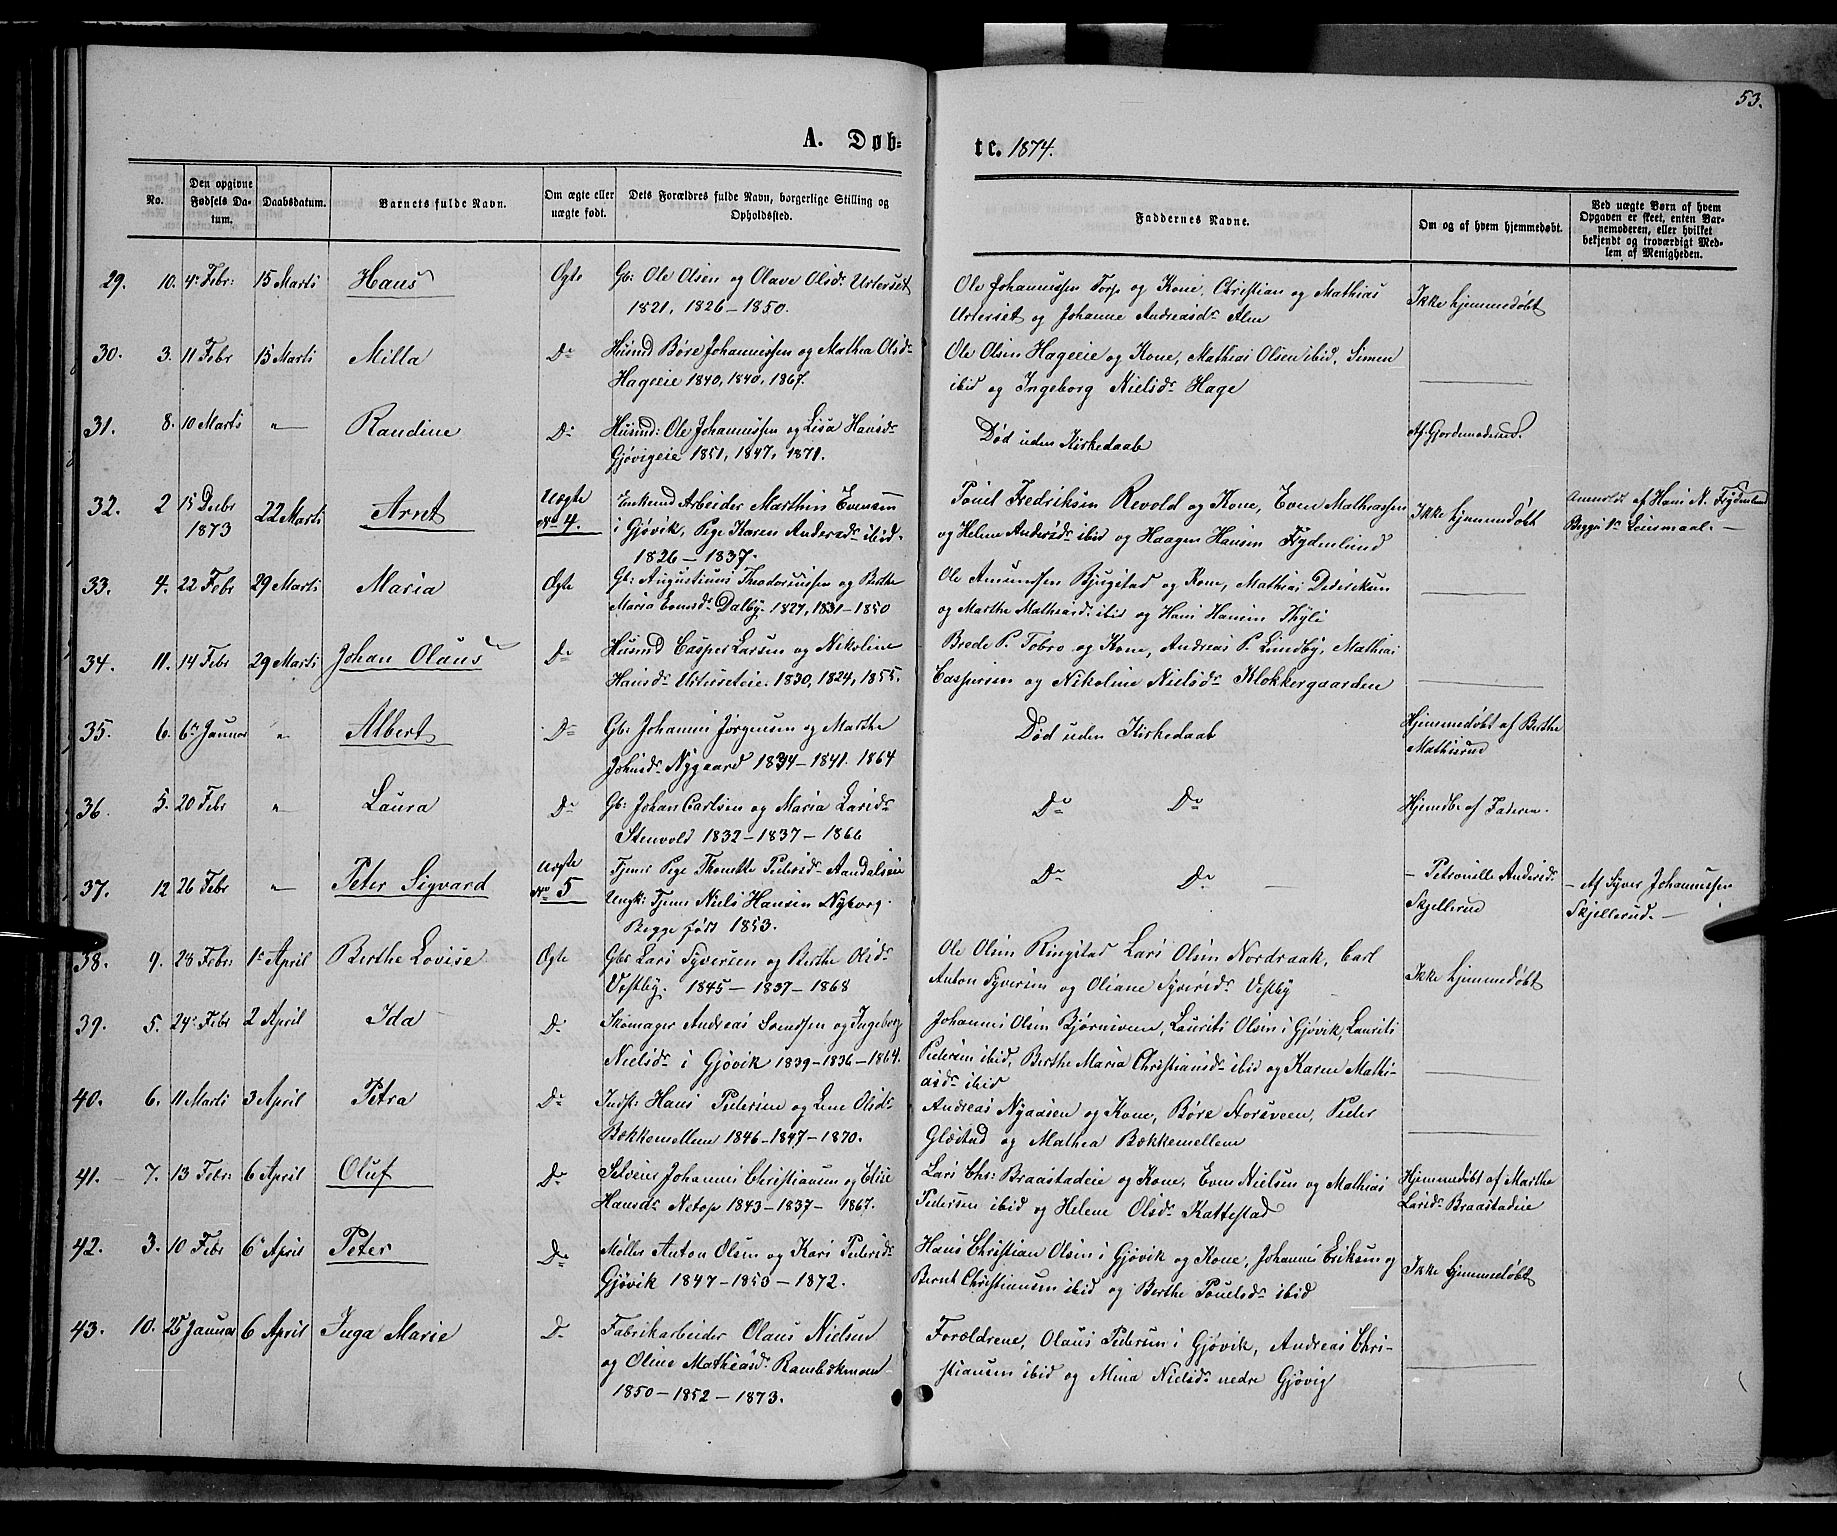 53.
A. Døb- te. 1874.
No. Den opgivne Fødsels Datum. Daabsdatum. Barnets fulde Navn. Om ægte eller uægte født. Dets Forældres fulde Navn, borgerlige Stilling og Opholdssted. Faddernes Navne. Om og af hvem hjemmedøbt. Ved uægte Børn af hvem Opgaven er skeet, enten Barnemoderen, eller hvilket bekjendt og troværdigt Medlem af Menigheden.
29. 10. 4. Febr: 15 Marts Hans Ægte Gb: Ole Olsen og Olave Olsdr Urterset Ole Johannessen Torp og Kone, Christian og Mathias
1821, 1826-1850. Urterset og Johanne Andreasdr Alm Ikke hjemmedøbt
30. 3. 11 Febr 15 Marts Milla Do Husmd Børe Johannessen og Mathea Olsdr Ole Olsen Hageeie og Kone, Mathias Olsen ibid, Simen
Hageeie 1840, 1840, 1867. ibid og Ingeborg Nielsdr Hage
31. 8. 10 Marts " Randine Do Husmd: Ole Johannessen og Lisa Hansdr Død uden Kirkedaab Af Gjordemoderen.
Gjøvigeie 1851, 1847, 1871.
32. 2 15 Decbr 1873 22 Marts Arnt Uægte No 4. Enkemd Arbeider Marthin Evensen Poul Fredriksen Revold og Kone, Even Mathiassen Ikke hjemmedøbt Anmeldt af Hans N. Frydenlund
i Gjøvik, Pige Karen Andersdr ibid. og Helene Andersdr ibid og Haagen Hansen Frydenlund Begges 1ste Leiermaal. —
1826 - 1837.
33. 4. 22 Febr 29 Marts Maria Ægte Gb: Augustinus Theodorussen og Berthe Ole Amundsen Bjugstad og Kone, Mathias Dideriksen
Maria Evensdr Dalby. 1827, 1831-1850 og Marthe Mathiasdr ibid og Hans Hansen Thyli
34. 11. 14 Febr 29 Marts Johan Olaus Do Husmd Casper Larsen og Nikoline Brede P. Tobro og Kone, Andreas P. Lundby, Mathias
Hansdr Urterseteie. 1830, 1824, 1855. Caspersen og Nikoline Nielsdr Klokkergaarden
35. 6. 6te Januar " Albert Do Gb: Johannes Jørgensen og Marthe Død uden Kirkedaab Hjemmedøbt af Berthe
Johnsdr Nygaard 1834-1841. 1864 Mathisrud
36. 5. 20 Febr " Laura Do Gb: Johan Carlsen og Maria Larsdr Do Do Hjemdbt af Faderen.
Stenvold 1832-1837-1866
37. 12 26 Febr " Peter Sigvard Uægte No 5 Tjener Pige Thomthe Pedersdr Aandalseie Do Do — - Petronille Andersdr - Af Syver Johannessen
Ungk: Tjener Niels Hansen Nyborg. Skjellerud Skjellerud. —
Begge født 1853.
38. 9. 28 Febr: 1ste April Berthe Lovise Ægte Gb: Lars Syversen og Berthe Olsdr Ole Olsen Ringstad Lars Olsen Nordraak, Carl
Vestby. 1845-1837-1868 Anton Syversen og Oliane Syversdr Vestby Ikke hjemmedøbt
39. 5. 24. Febr 2 April Ida Do Skomager Andreas Svendsen og Ingeborg Johannes Olsen Bjørnsveen, Laurits Olsen i Gjøvik, Laurits
Nielsdr i Gjøvik 1839-1836-1864. Pedersen ibid, Berthe Maria Christiansdr ibid og Karen Mathi-
asdr ibid
40. 6. 11 Marts 3 April Petra Do Indst: Hans Pedersen og Lene Olsdr Andreas Nyaasen og Kone, Børe Storsveen, Peder
Bækkemellem 1846-1847-1870. Glæstad og Mathea Bækkemellem
41. - 7. 13 Febr: 6 April Oluf Do Selveier Johannes Christiansen og Elise Lars Chr: Braastadeie og Kone, Even Nielsen og Mathias Hjemmedøbt af Marthe
Hansdr Netop 1843-1837- 1867. Pedersen ibid og Helene Olsdr Kattestad Larsdr Braastadeie
42. 3. 10 Febr 6te April Peter Do Møller Anton Olsen og Kari Pedersdr Hans Christian Olsen i Gjøvik og Kone, Johannes Eriksen og
Gjøvik 1847-1850-1872. Bernt Christiansen ibid og Berthe Poulsdr ibid Ikke hjemmedøbt
43. 10. 25 Januar 6 April Inga Marie Do Fabrikarbeider Olaus Nielsen Forældrene, Olaus Pedersen i Gjøvik, Andreas Chri-
og Oline Mathiasdr Rambekmoen stiansen ibid og Mina Nielsdr nedre Gjøvig
1850-1852-1873.